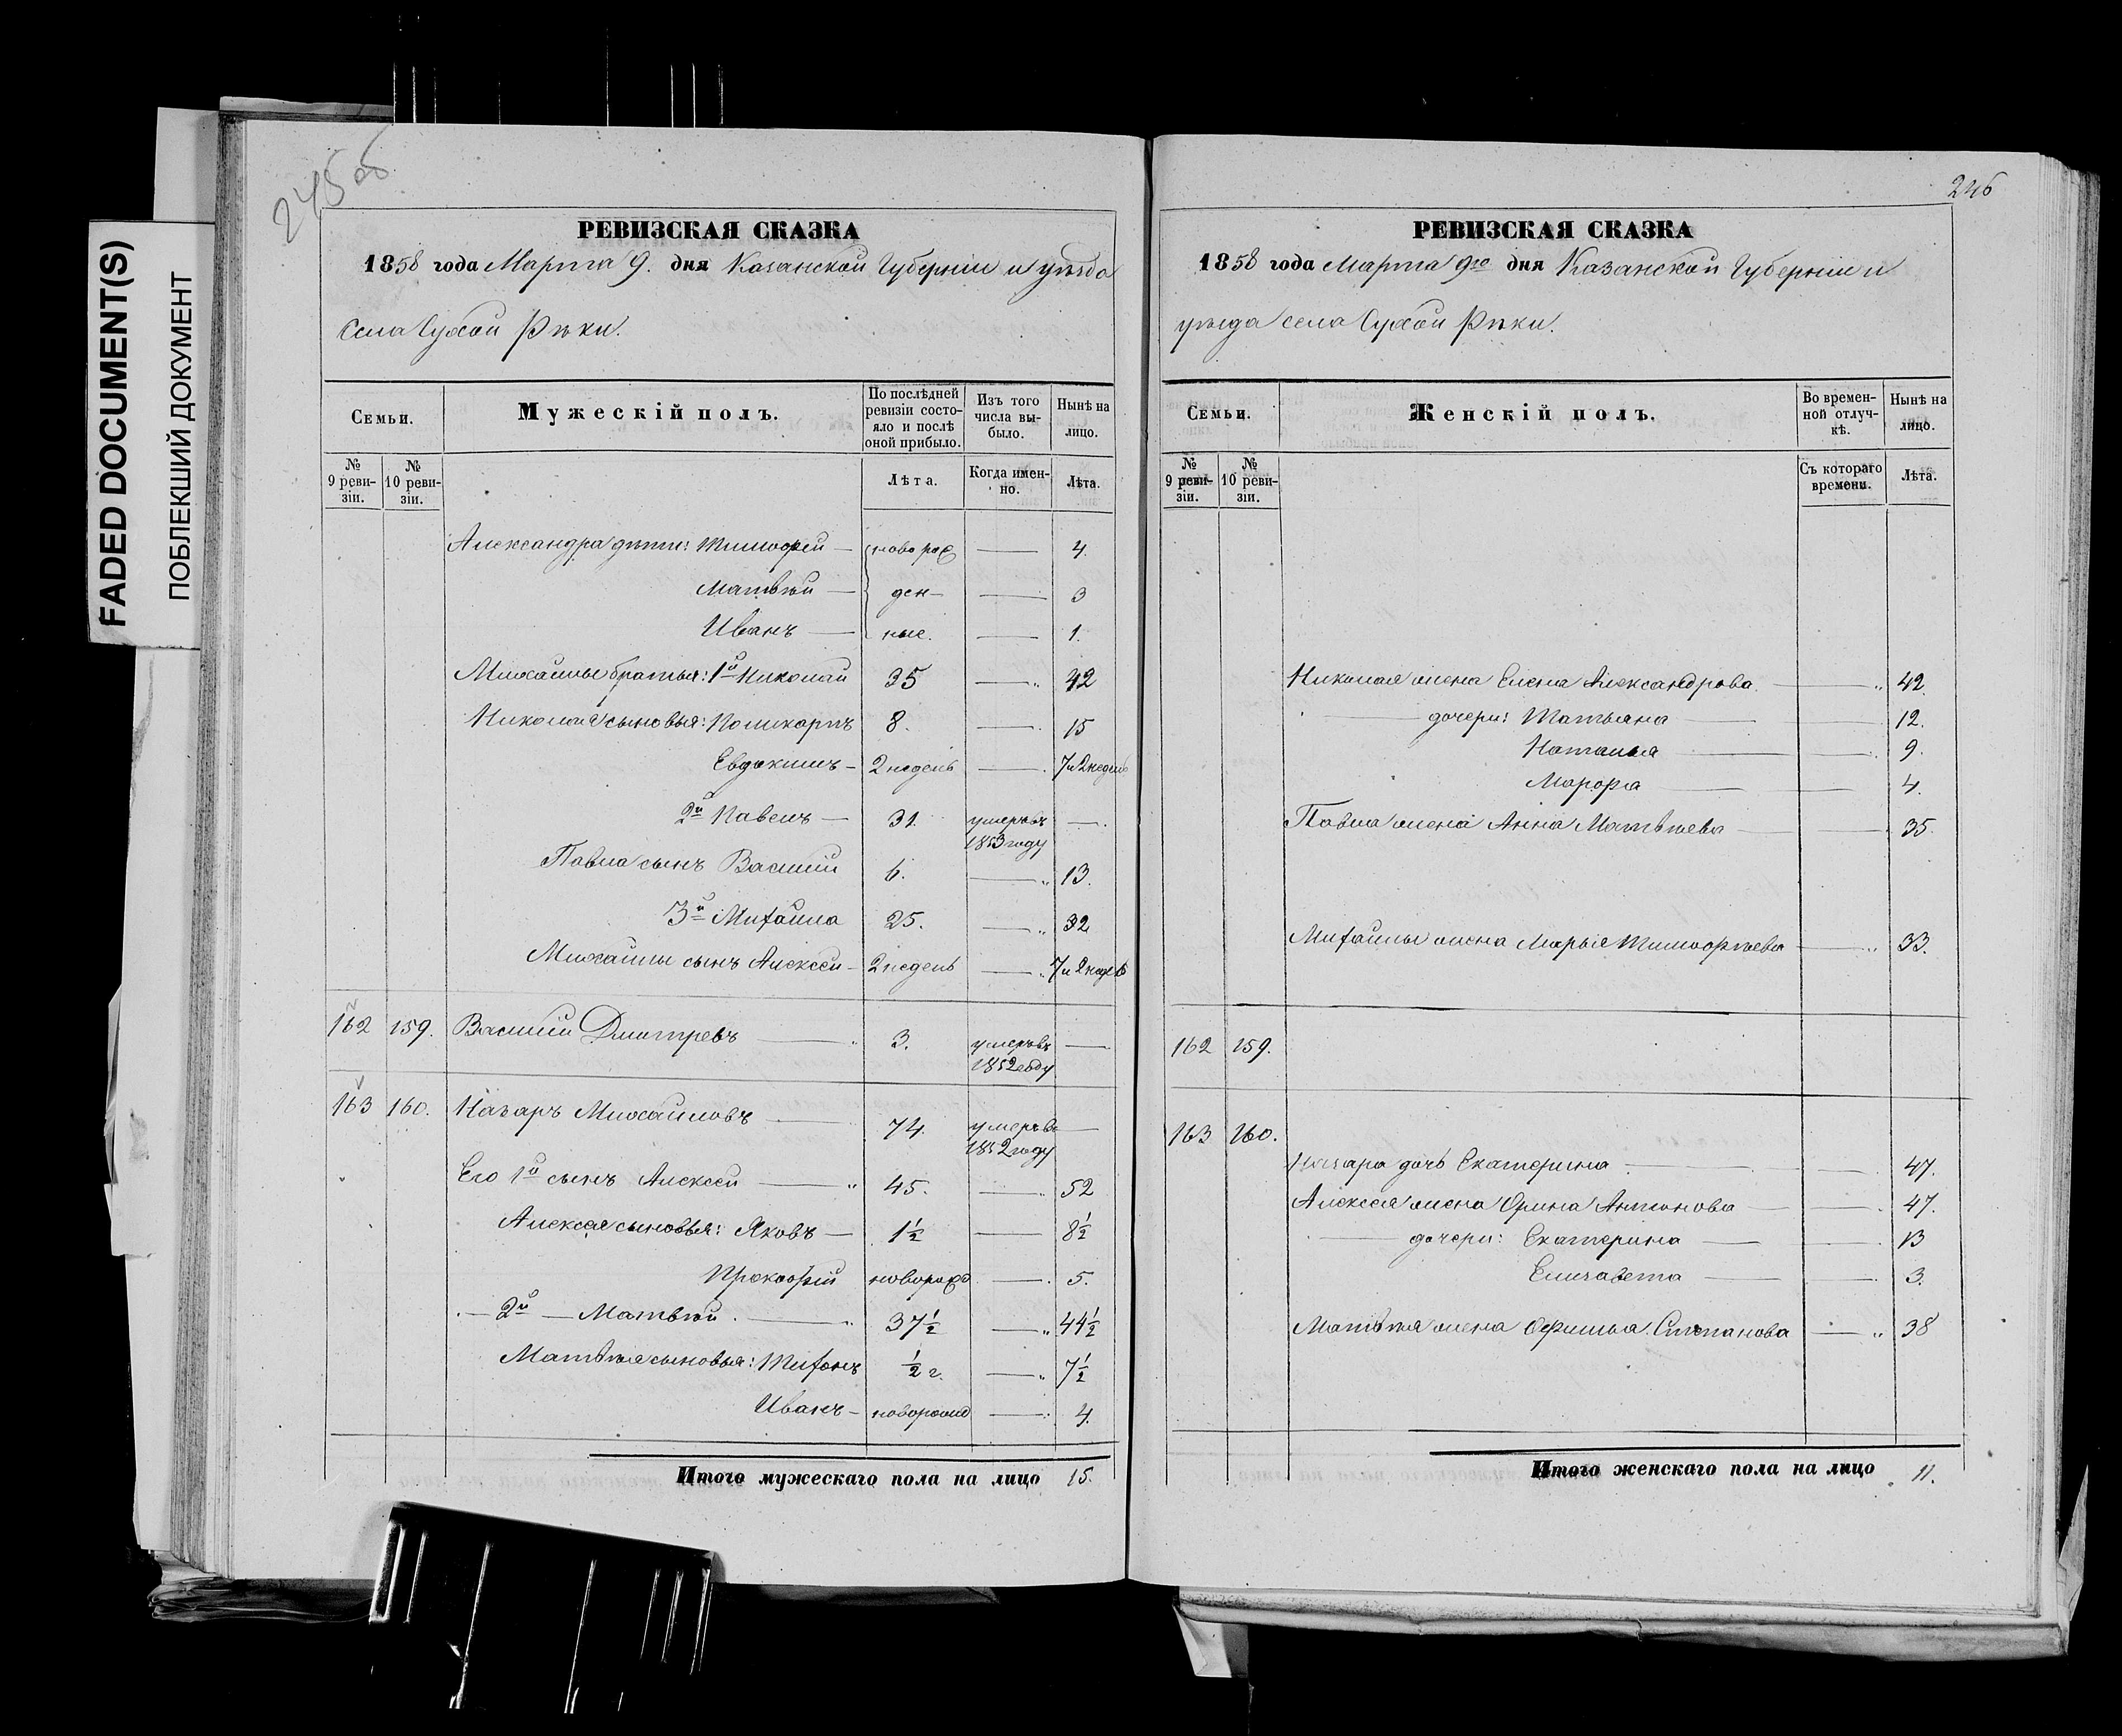 FADED DOCUMENT(S)
ПОБЛЕКШИЙ ДОКУМЕНТ
245 об
РЕВИЗСКАЯ СКАЗКА
1858 года Марта 9. дня Казанской Губерніи и уѣзда
села Сухой Рѣки.
Семьи.
Мужескій полъ.
По послѣдней ревизіи состояло и послѣ оной прибыло.
Изъ того числа выбыло.
Нынѣ на лицо.
№ 9 ревизіи.
№ 10 ревизіи.
Лѣта.
Когда именно.
Лѣта.
Александра дѣти: Тимофей — новорож — 4.
Матвѣй — ден — 3
Иванъ — ные. — 1.
Михайлы братья: 1й Николай 35 — 42
Николая сыновья: Поликарпъ 8. — 15
Евдокимъ — 2 недель — 7 и 2 недель
2й Павелъ — 31. умеръ въ 1853 году —
Павла сынъ Василій 6. — 13.
3й Михайла 25. — 32
Михайлы сынъ Алексей — 2 недель — 7 и 2 недел
162 159. Василій Дмитревъ — 3. умеръ въ 1852 году —
163 160. Назаръ Михайловъ — 74. умеръ въ 1852 году —
Его 1й сынъ Алексей — 45. — 52
Алексея сыновья: Яковъ — 1½ — 8½
Прокофій новорожд — 5.
— 2й — Матвѣй. — 37½ — 44½
Матвѣя сыновья: Тихонъ ½ г. — 7½
Иванъ — новорожд — 4.
Итого мужескаго пола на лицо 15.
246
РЕВИЗСКАЯ СКАЗКА
1858 года Марта 9го дня Казанской Губерніи и
уѣзда села Сухой Рѣки.
Семьи.
Женскій полъ.
Во временной отлучкѣ.
Нынѣ на лицо.
№ 9 ревизіи.
№ 10 ревизіи.
Съ котораго времени.
Лѣта.
Николая жена Елена Александрова — 42.
дочери: Татьяна — 12.
Наталья — 9.
Марфа — 4.
Павла жена Анна Матвѣева — 35.
Михайлы жена Марья Тимофѣева — 33.
162 159.
163 160.
Назара дочь Екатерина — 47.
Алексея жена Орина Антонова — 47.
дочери: Екатерина — 13
Елизавета — 3.
Матвѣя жена Офимья Степанова — 38
Итого женскаго пола на лицо 11.